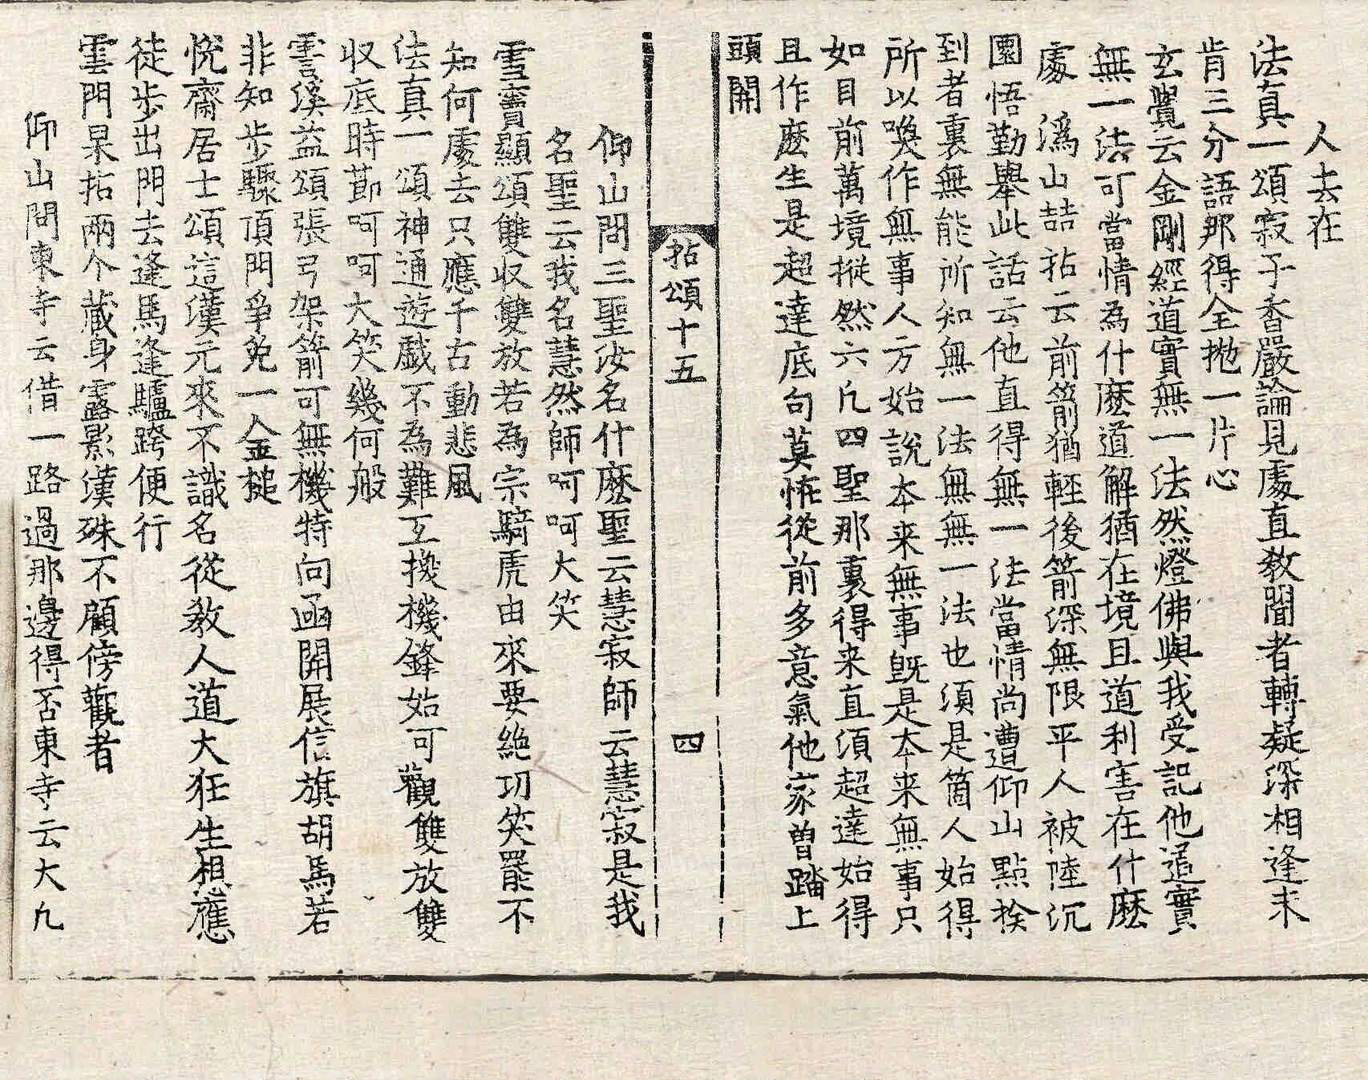 人去在
法真一頌寂子香嚴論見處直教聞者轉疑深相逢未
肯三分語那得全抛一片心
玄覺云金剛經道實無一法然燈佛與我受記他道實
無一法可當情為什麽道解猶在境且道利害在什麽
處 溈山喆拈云前箭猶輕後箭深無限平人被陸沉
圓悟勤舉此話云他直得無一法當情尚遭仰山點撿
到者裏無能所知無一法無無一法也須是箇人始得
所以喚作無事人方始說本来無事旣是本来無事只
如目前萬境摐然六凡四聖那裏得来直須超達始得
且作麽生是超達底句莫恠從前多意氣他家曾踏上
頭開
拈頌十五
四
仰山問三聖汝名什麽聖云慧寂師云慧寂是我
名聖云我名慧然師呵呵大笑
雪竇顯頌雙収雙放若為宗騎虎由來要絶功笑罷不
知何處去只應千古動悲風
法真一頌神通遊戱不為難互換機鋒始可觀雙放雙
収底時莭呵呵大笑幾何般
雲溪益頌張弓架箭可無機特向函開展信旗胡馬若
非知步驟頂門爭免一金槌
悅齋居士頌這漢元來不識名從教人道大狂生相應
徒步出門去逢馬逢驢跨便行
雲門杲拈兩个藏身露影漢殊不顧傍觀者
仰山問東寺云借一路過那邊得否東寺云大凡